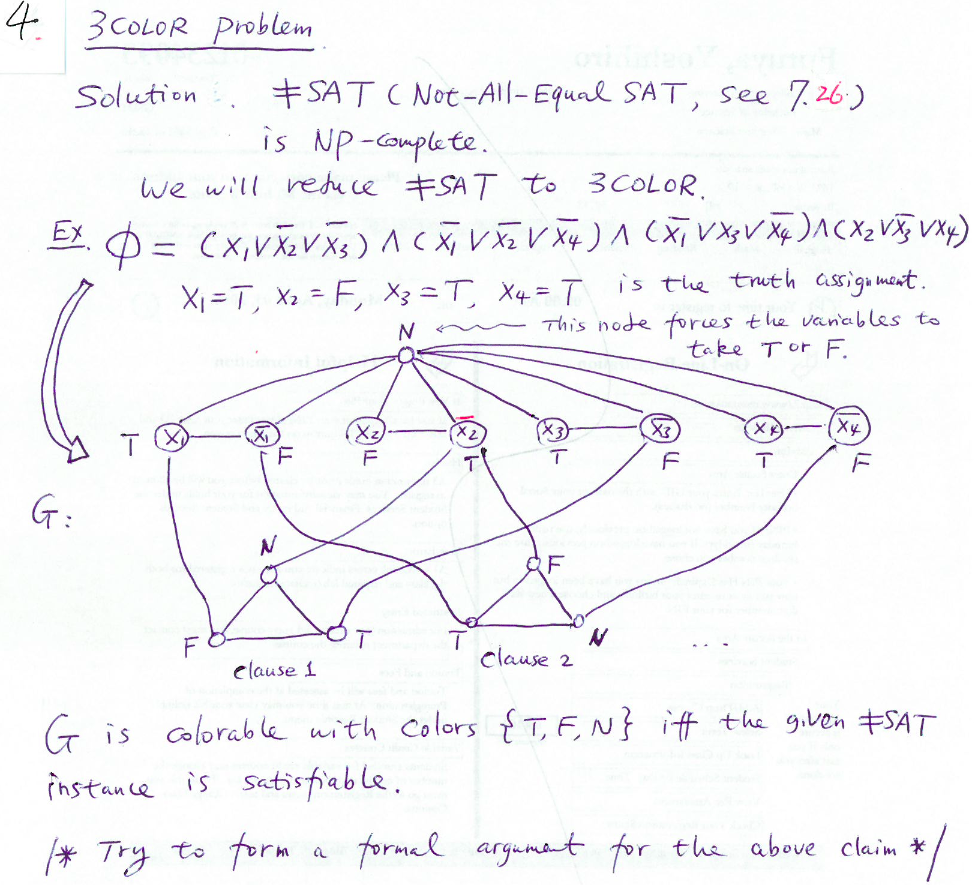 4. 3COLOR Problem
Solution. ≠SAT (Not-All-Equal SAT, see 7.26.)
is NP-complete.
We will reduce ≠SAT to 3COLOR.
Ex. ϕ = (x₁∨x̅₂∨x̅₃) ∧ (x̅₁∨x₂∨x̅₄) ∧ (x̅₁∨x₃∨x̅₄) ∧ (x₂∨x̅₃∨x₄)
x₁=T, x₂=F, x₃=T, x₄=T is the truth assignment.
N This node forces the variables to
take T or F.
T x₁ x̅₁ x₂ x̅₂ x₃ x̅₃ x₄ x̅₄
F F T T F T F
G:
N F
F T T N ...
Clause 1 Clause 2
G is colorable with colors {T, F, N} iff the given ≠SAT
instance is satisfiable.
/* Try to form a formal argument for the above claim */